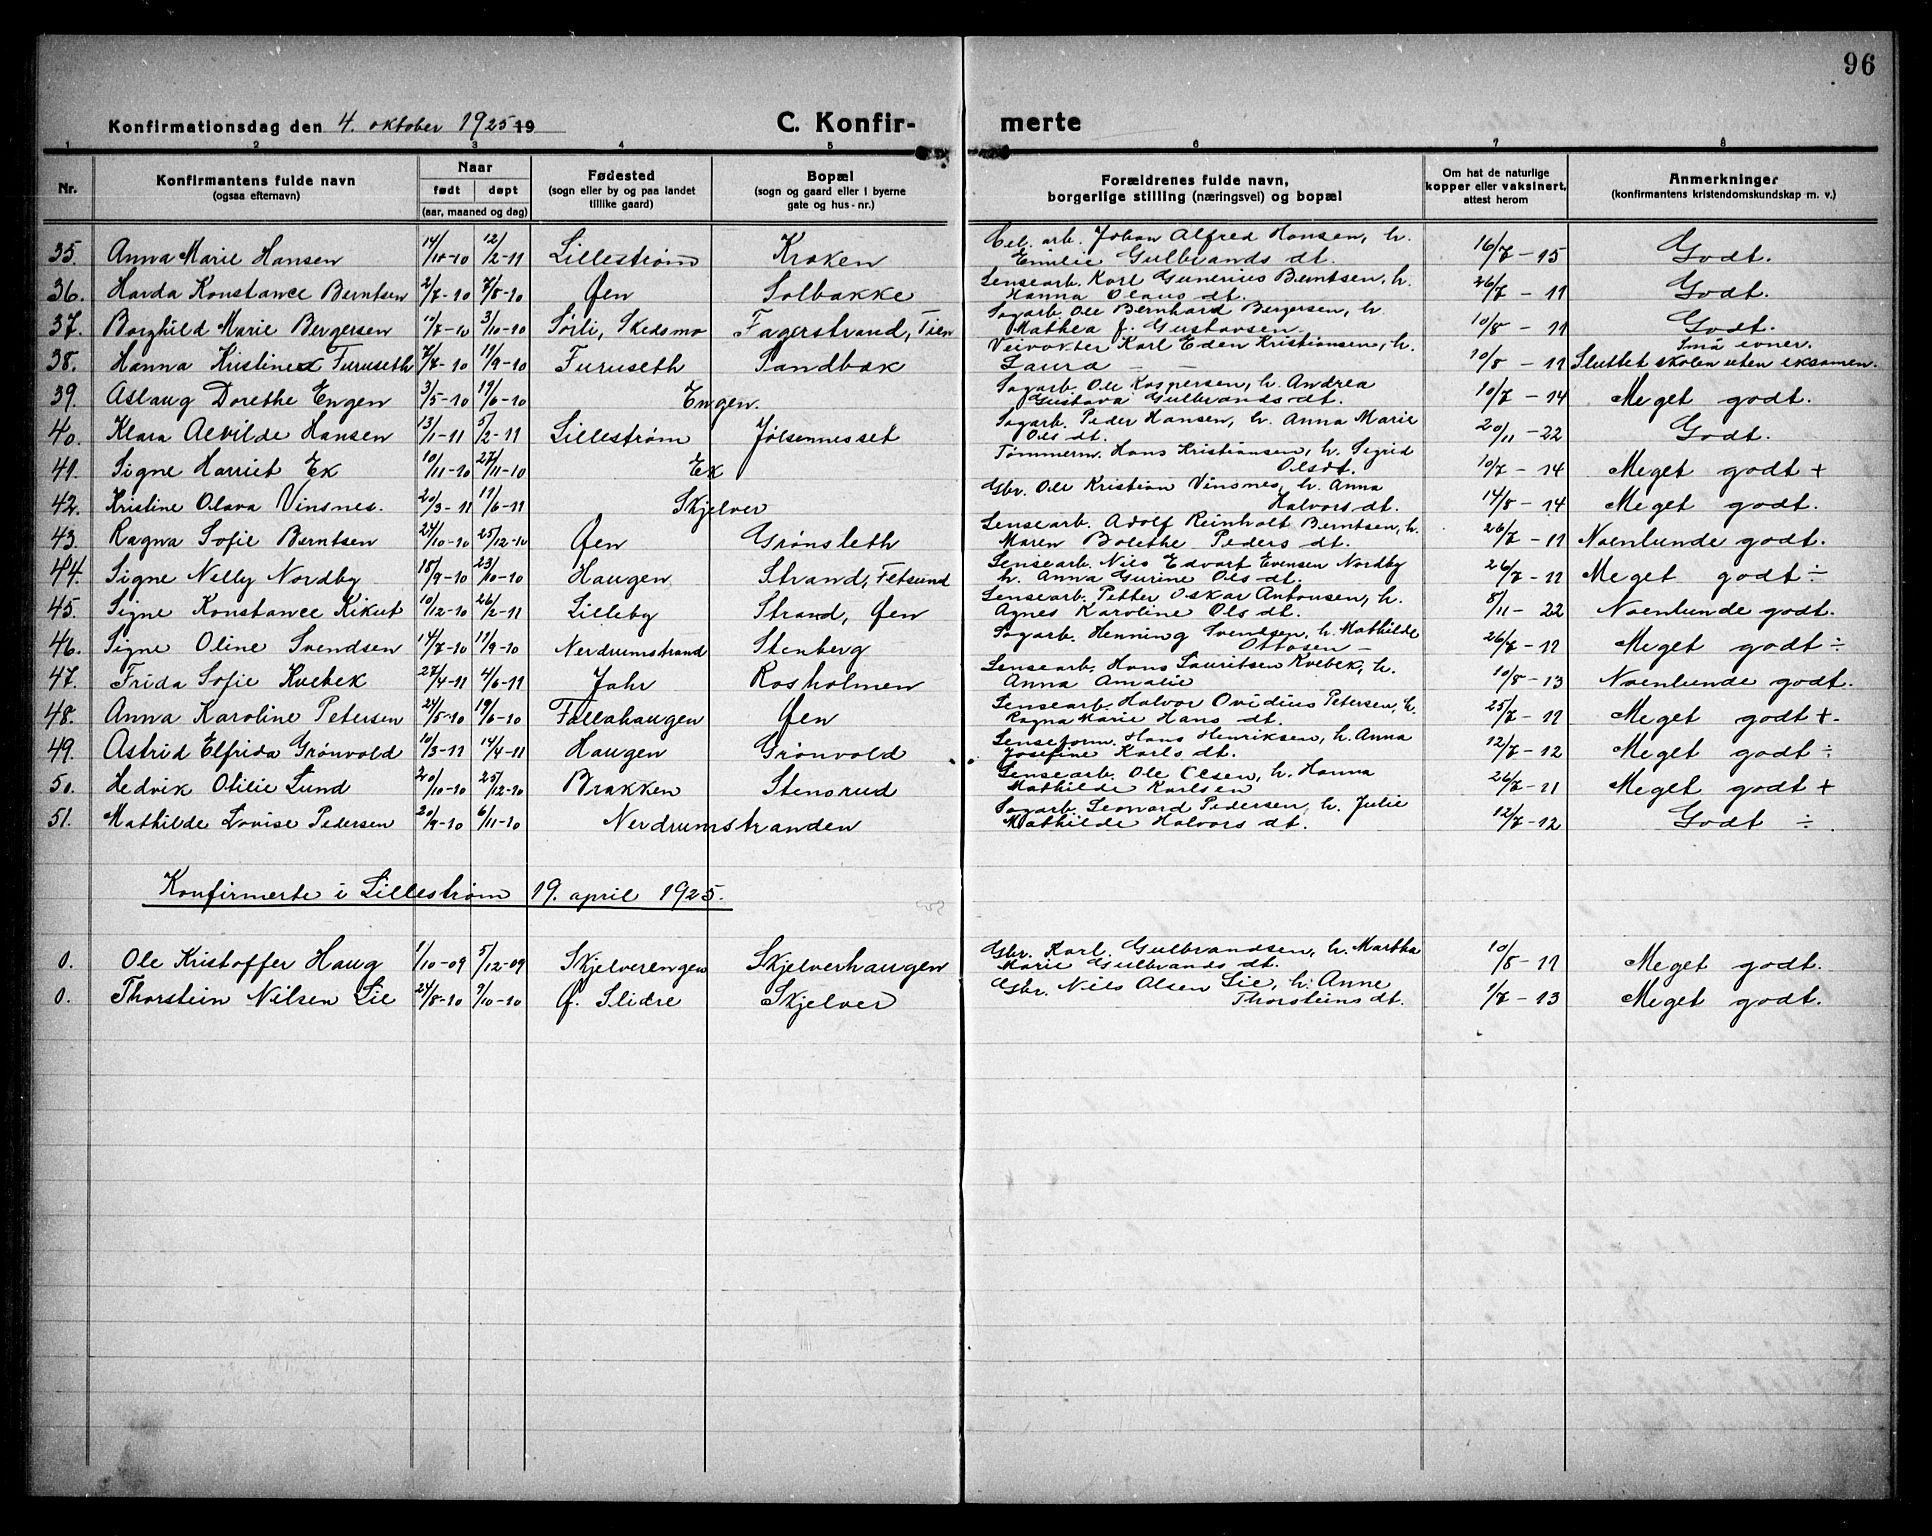 96
Konfirmationsdag den 4. oktober 1925 19
C. Konfir-
merte
1 2 3 4 5 6 7 8
Nr.
Konfirmantens fulde navn
(ogsaa efternavn)
Naar
født døpt
(aar, maaned og dag)
Fødested
(sogn eller by og paa landet
tillike gaard)
Bopæl
(sogn og gaard eller i byerne
gate og hus-nr.)
Forældrenes fulde navn,
borgerlige stilling (næringsvei) og bopæl
Om hat de naturlige
kopper eller vaksinert,
attest herom
Anmerkninger
(konfirmantens kristendomskundskap m. v.)
35. Anna Marie Hansen 14/10-10 12/2-11 Lillestrøm Kroken arb. Johan Alfred Hansen, h.
Emilie Gulbrands dt. 16/7-15 Godt.
36. Harda Konstance Berntsen 2/7-10 7/8-10 Øen Solbakke Lensearb. Karl Gunerius Berntsen, h.
Hanna Olaus dt. 26/7-11 Godt.
37. Borghild Marie Bergersen 10/7-10 3/10-10 Sørli, Skedsmo Fagerstrand, Tien Sagarb. Ole Bernhard Bergersen, h.
Mathea f. Gustavsen 10/8-11 Godt.
38. Hanna Kristine Furuseth 7/7-10 11/9-10 Furuseth Sandbak Veivokter Karl Eden Kristiansen, h.
Laura — — 10/8-11 Små evner.
Sluttet skolen uten eksamen.
39. Aslaug Dorethe Engen 3/5-10 19/6-10 Engen. Sagarb. Ole Kaspersen, h. Andrea
Gustava Gulbrands dt. 10/7-14 Meget godt.
40. Klara Alvilde Hansen 13/1-11 5/2-11 Lillestrøm Jølsennesset Sagarb. Peder Hansen, h. Anna Marie
Ols dt. 20/11-22 Godt.
41. Signe Harriet Ek 10/11-10 27/11-10 Ek Tømmerm. Hans Kristiansen, h. Sigrid
Olsdt. 10/7-14 Meget godt +
42. Kristine Olava Vinsnes. 20/3-11 11/6-11 Skjelver Gbr. Ole Kristian Vinsnes, h. Anna
Halvors dt. 14/8-14 Meget godt.
43. Ragna Sofie Berntsen 24/10-10 25/12-10 Øen Grønsleth Lensearb. Adolf Reinholt Berntsen, h.
Maren Bolethe Peders dt. 26/7-11 Noenlunde godt.
44. Signe Nelly Nordby 18/9-10 23/10-10 Haugen Strand, Fetsund Lensearb. Nils Edvart Evensen Nordby
h. Anna Gurine Ols dt. 26/7-11 Meget godt ÷
45. Signe Konstance Kikut 10/12-10 26/2-11 Lilleby Strand, Øen Lensearb. Petter Oskar Antonsen, h.
Agnes Karoline Ols dt. 8/11-22 Noenlunde godt.
46. Signe Oline Svendsen 14/7-10 11/9-10 Nerdrumstrand Stenberg Sagarb. Henning Svendsen, h. Mathilde
Ottosen — 26/7-12 Meget godt ÷
47. Frida Sofie Kvebek 27/4-11 4/6-11 Jahr Rosholmen Lensearb. Hans Lauritsen Kvebek, h.
Anna Amalie 10/8-13 Noenlunde godt.
48. Anna Karoline Petersen 24/5-10 19/6-10 Fallahaugen Øen Lensearb. Halvor Ovidius Petersen, h.
Ragna Marie Hans dt. 25/7-12 Meget godt +.
49. Astrid Elfrida Grønvold 10/3-11 14/4-11 Haugen Grønvold Lenseform. Hans Henriksen, h. Anna
Josefine Karls dt. 12/7-12 Meget godt ÷
50. Hedvik Otilie Lund 20/10-10 25/12-10 Brakken Stensrud Lensearb. Ole Olsen, h. Hanna
Mathilde Karlsen 26/7-11 Meget godt +
51. Mathilde Lovise Pedersen 20/9-10 6/11-10 Nerdrumstranden Sagarb. Leonard Pedersen, h. Julie
Mathilde Halvors dt. 12/7-12 Godt ÷
Konfirmerte i Lillestrøm 19. april 1925.
0. Ole Kristoffer Haug 1/10-09 5/12-09 Skjelverengen Skjelverhaugen Gbr. Karl Gulbrandsen, h. Martha
Marie Gulbrands dt. 10/8-11 Meget godt.
0. Thorstein Nilsen Lie 24/8-10 9/10-10 Ø. Slidre Skjelver Gbr. Nils Olsen Lie, h. Anne
Thorsteins dt. 1/7-13 Meget godt.